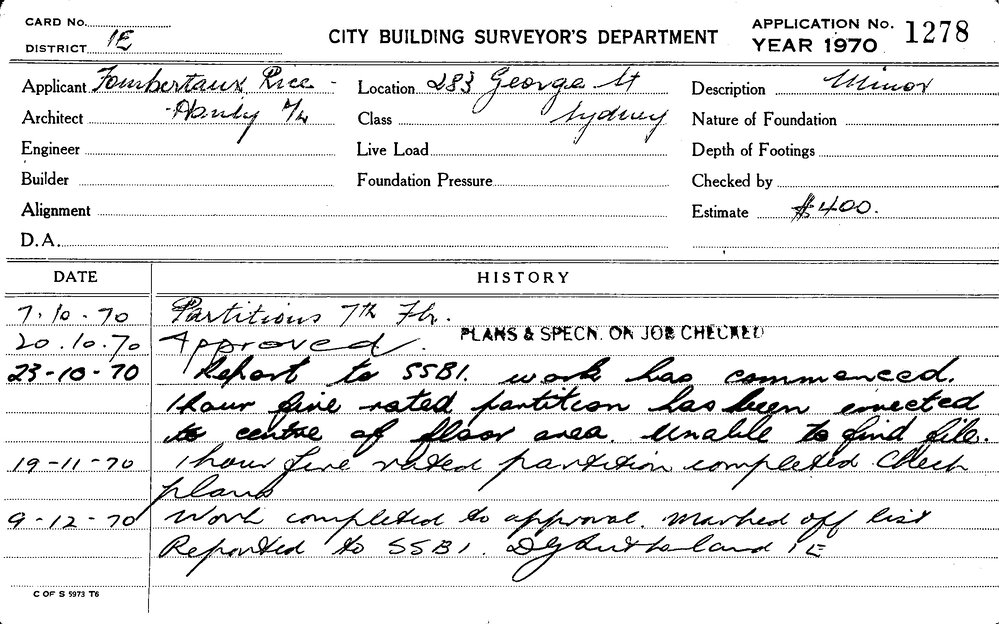 CARD No.
DISTRICT 1E
CITY BUILDING SURVEYOR'S DEPARTMENT
APPLICATION No. 1278
YEAR 1970
Applicant Fombertaux Rice -
Location 283 George St
Description Minor
Architect - Hanly P/L
Class Sydney
Nature of Foundation
Engineer
Live Load
Depth of Footings
Builder
Foundation Pressure
Checked by
Alignment
Estimate $400.
D.A.
DATE HISTORY
7.10.70 Partitions 7th Flr.
20.10.70 Approved. PLANS & SPECN. ON JOB CHECKED
23-10-70 Report to SSBI. work has commenced.
1 hour fire rated partition has been erected
to centre of floor area. Unable to find file.
19-11-70 1 hour fire rated partition completed. Check
plans
9-12-70 Work completed to approval. Marked off list
Reported to SSBI. DGSutherland 1E
C OF S 5973 T6